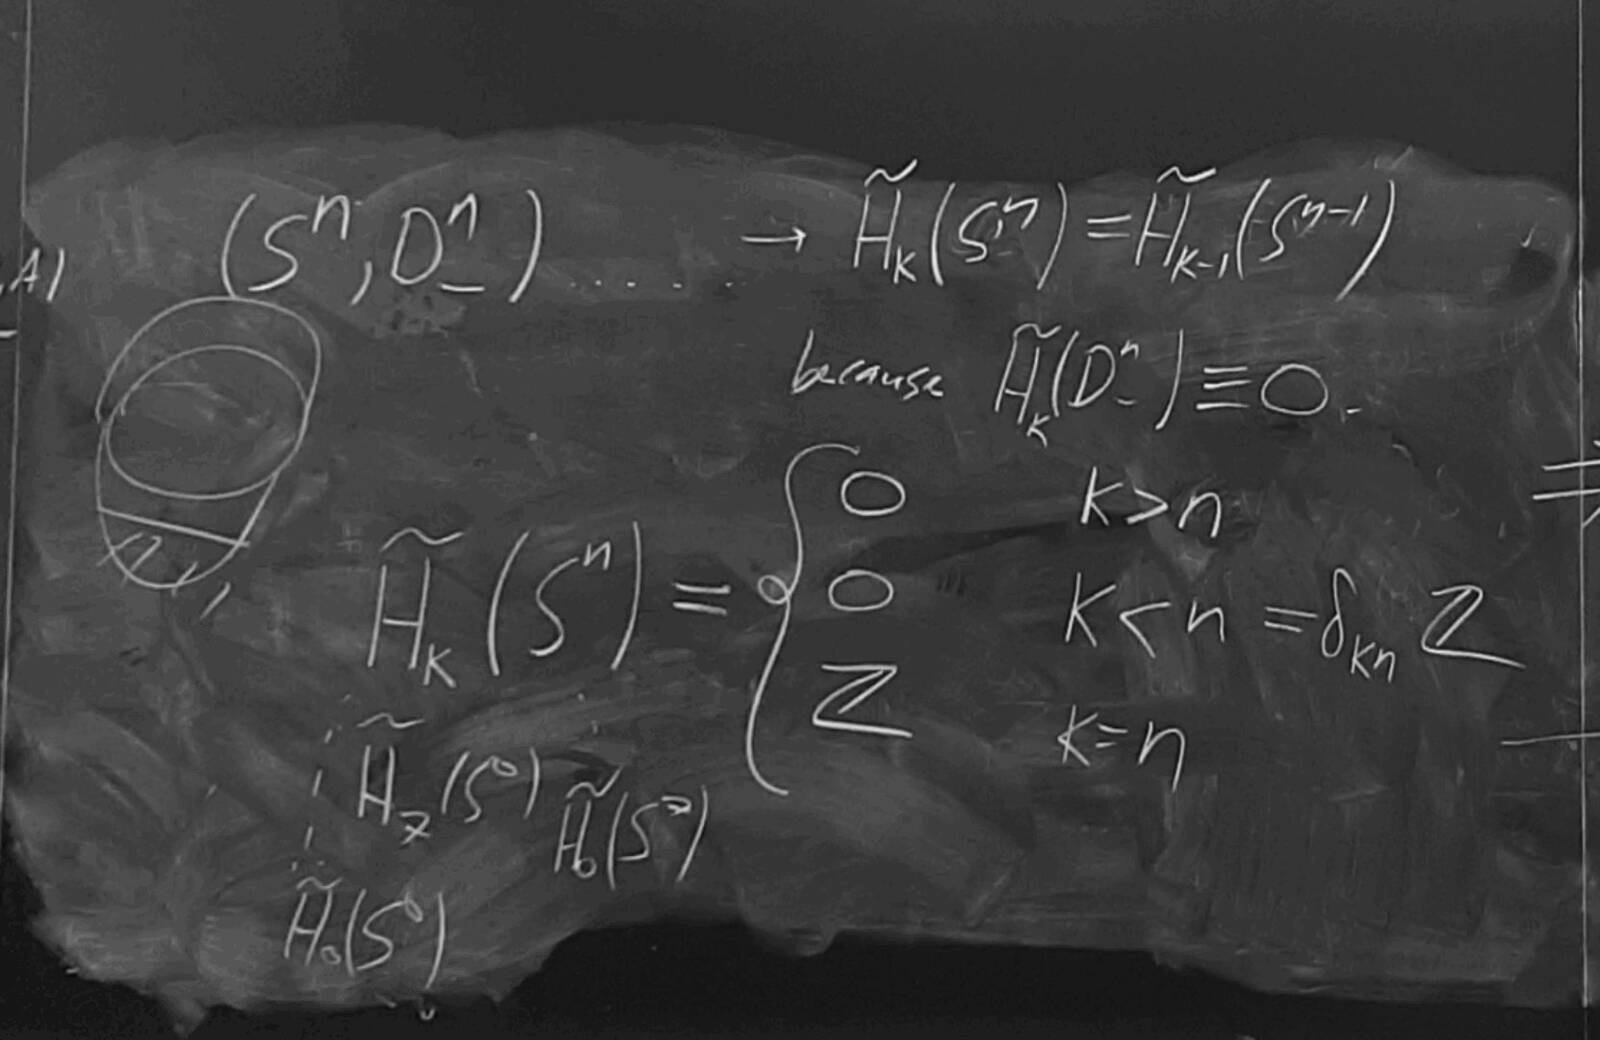 ,A)
(Sⁿ, Dⁿ₋) . . . . . → H̃ₖ(Sⁿ) = H̃ₖ₋₁(Sⁿ⁻¹)
because H̃ₖ(Dⁿ₋) ≡ 0.
H̃ₖ(Sⁿ) = { 0 k>n
0 k<n = δₖₙ ℤ
ℤ k=n
H̃₇(S⁰) H̃₀(S⁷)
H̃₀(S⁰)